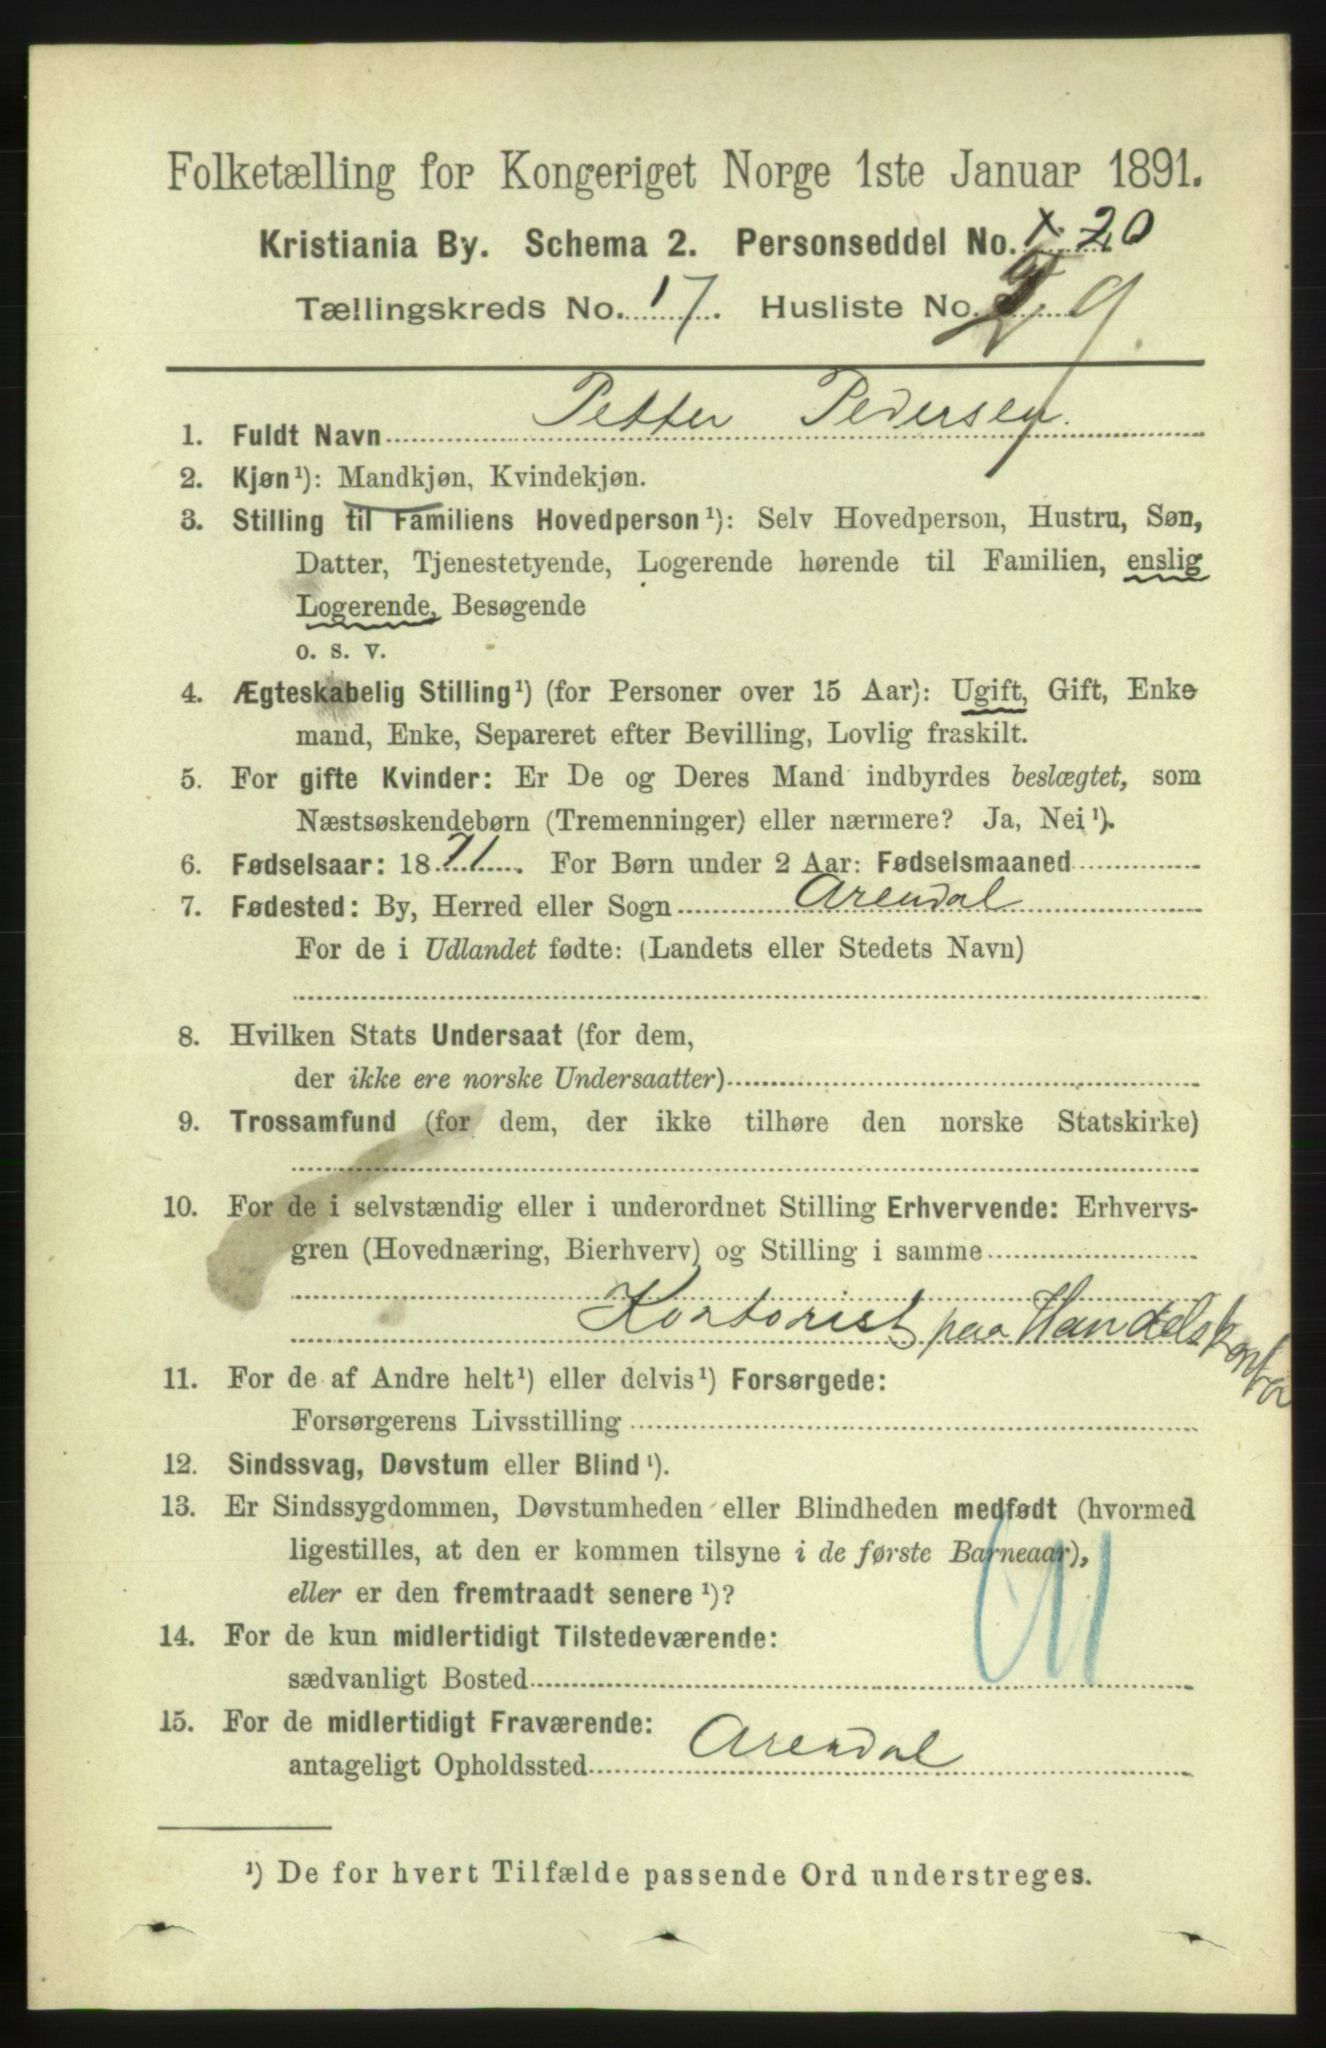 Folketælling for Kongeriget Norge 1ste Januar 1891.
Kristiania By. Schema 2. Personseddel No. 20
Tællingskreds No. 17. Husliste No. 29.
1. Fuldt Navn Petter Pedersen.
2. Kjøn¹): Mandkjøn, Kvindekjøn.
3. Stilling til Familiens Hovedperson¹): Selv Hovedperson, Hustru, Søn,
Datter, Tjenestetyende, Logerende hørende til Familien, enslig
Logerende, Besøgende
o. s. v.
4. Ægteskabelig Stilling¹) (for Personer over 15 Aar): Ugift, Gift, Enke
mand, Enke, Separeret efter Bevilling, Lovlig fraskilt.
5. For gifte Kvinder: Er De og Deres Mand indbyrdes beslægtet, som
Næstsøskendebørn (Tremenninger) eller nærmere? Ja, Nei¹).
6. Fødselsaar: 1871. For Børn under 2 Aar: Fødselsmaaned
7. Fødested: By, Herred eller Sogn Arendal
For de i Udlandet fødte: (Landets eller Stedets Navn)
8. Hvilken Stats Undersaat (for dem,
der ikke ere norske Undersaatter)
9. Trossamfund (for dem, der ikke tilhøre den norske Statskirke)
10. For de i selvstændig eller i underordnet Stilling Erhvervende: Erhvervs-
gren (Hovednæring, Bierhverv) og Stilling i samme
Kontorist paa Handelskontor
11. For de af Andre helt¹) eller delvis¹) Forsørgede:
Forsørgerens Livsstilling
12. Sindssvag, Døvstum eller Blind¹).
13. Er Sindssygdommen, Døvstumheden eller Blindheden medfødt (hvormed
ligestilles, at den er kommen tilsyne i de første Barneaar),
eller er den fremtraadt senere¹)?
14. For de kun midlertidigt Tilstedeværende:
sædvanligt Bosted
15. For de midlertidigt Fraværende:
antageligt Opholdssted Arendal
¹) De for hvert Tilfælde passende Ord understreges.